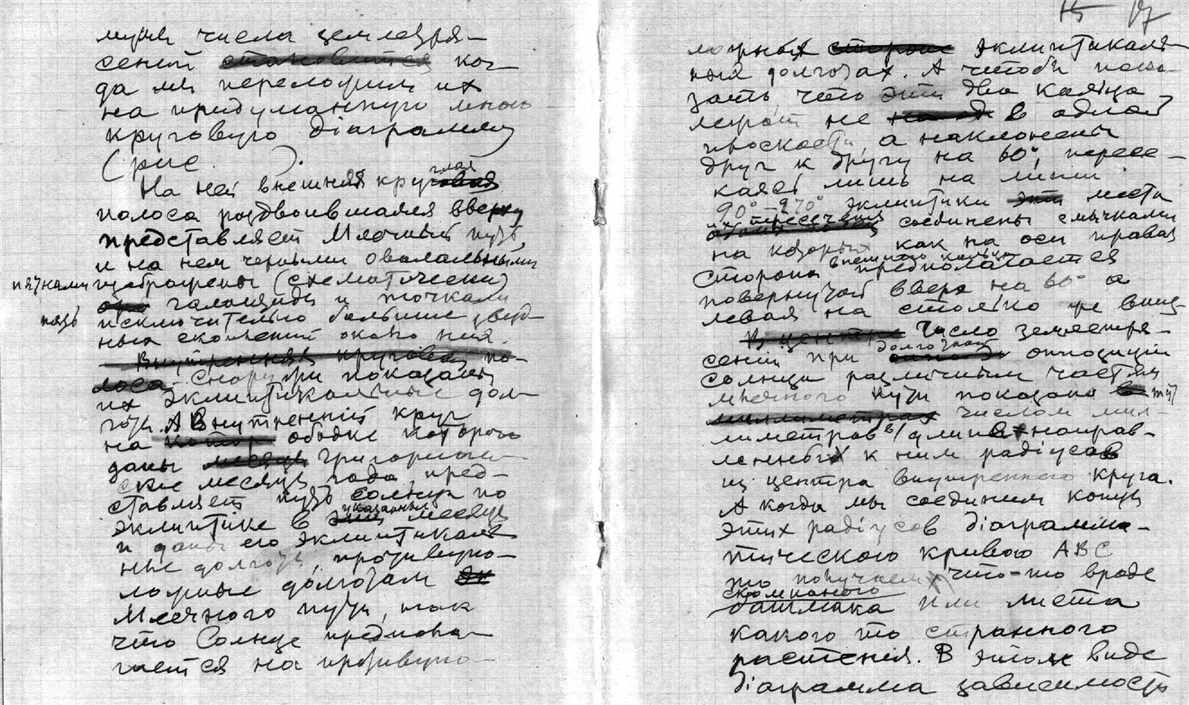 15 17
числа земледря-
сений становится ког-
да мы переложим их
на придуманную мною
круговую діаграмму
(рис. ).
На ней внешняя круглая
полоса раздвоившаяся вверху
представляет Млечный путь,
и на нем черными овальными
пятнами изображены (схематически)
галаццды и точками
исключительно большие звезд-
ные скопления около них.
Внутренняя круговая по-
лоса снаружи показаны
их эклиптикальные дол-
готы. А Внутренній круг
на ободке которого
даны месяцы григориан-
ские месяцы года, пред-
ставляет путь солнца по
эклиптике в указанные месяцы
и даны его эклиптикаль-
ные долготы, противупо-
ложные долготам
Млечного пути, так
что Солнце предпола-
гается на противупо-
ложных стороне эклиптикаль-
ных долготах. А чтобы пока-
зать, что эти два кольца
лежат не в одной
плоскости, а наклонены
друг к другу на 60°, пересе-
каясь лишь на линии
90°–270° эклиптики места
их пересечения соединены смычками
на которых как на оси правая
сторона внешнего кольца предполагается
повернутой вверх на 60° а
левая на столько же вниз
В центре Число землетря-
сений при долготной оппозиціи
солнца различным частям
млечного пути показано тут
миллиметрах числом мил-
лиметров в длине направ-
ленных к ним радіусов
из центра внутреннего круга.
А когда мы соединим концы
этих радіусов діаграмма-
тической кривою АВС
то получаем что-то вроде
скомпаного башмака или листа
какого то странного
растенія. В этом виде
діаграмма зависимость